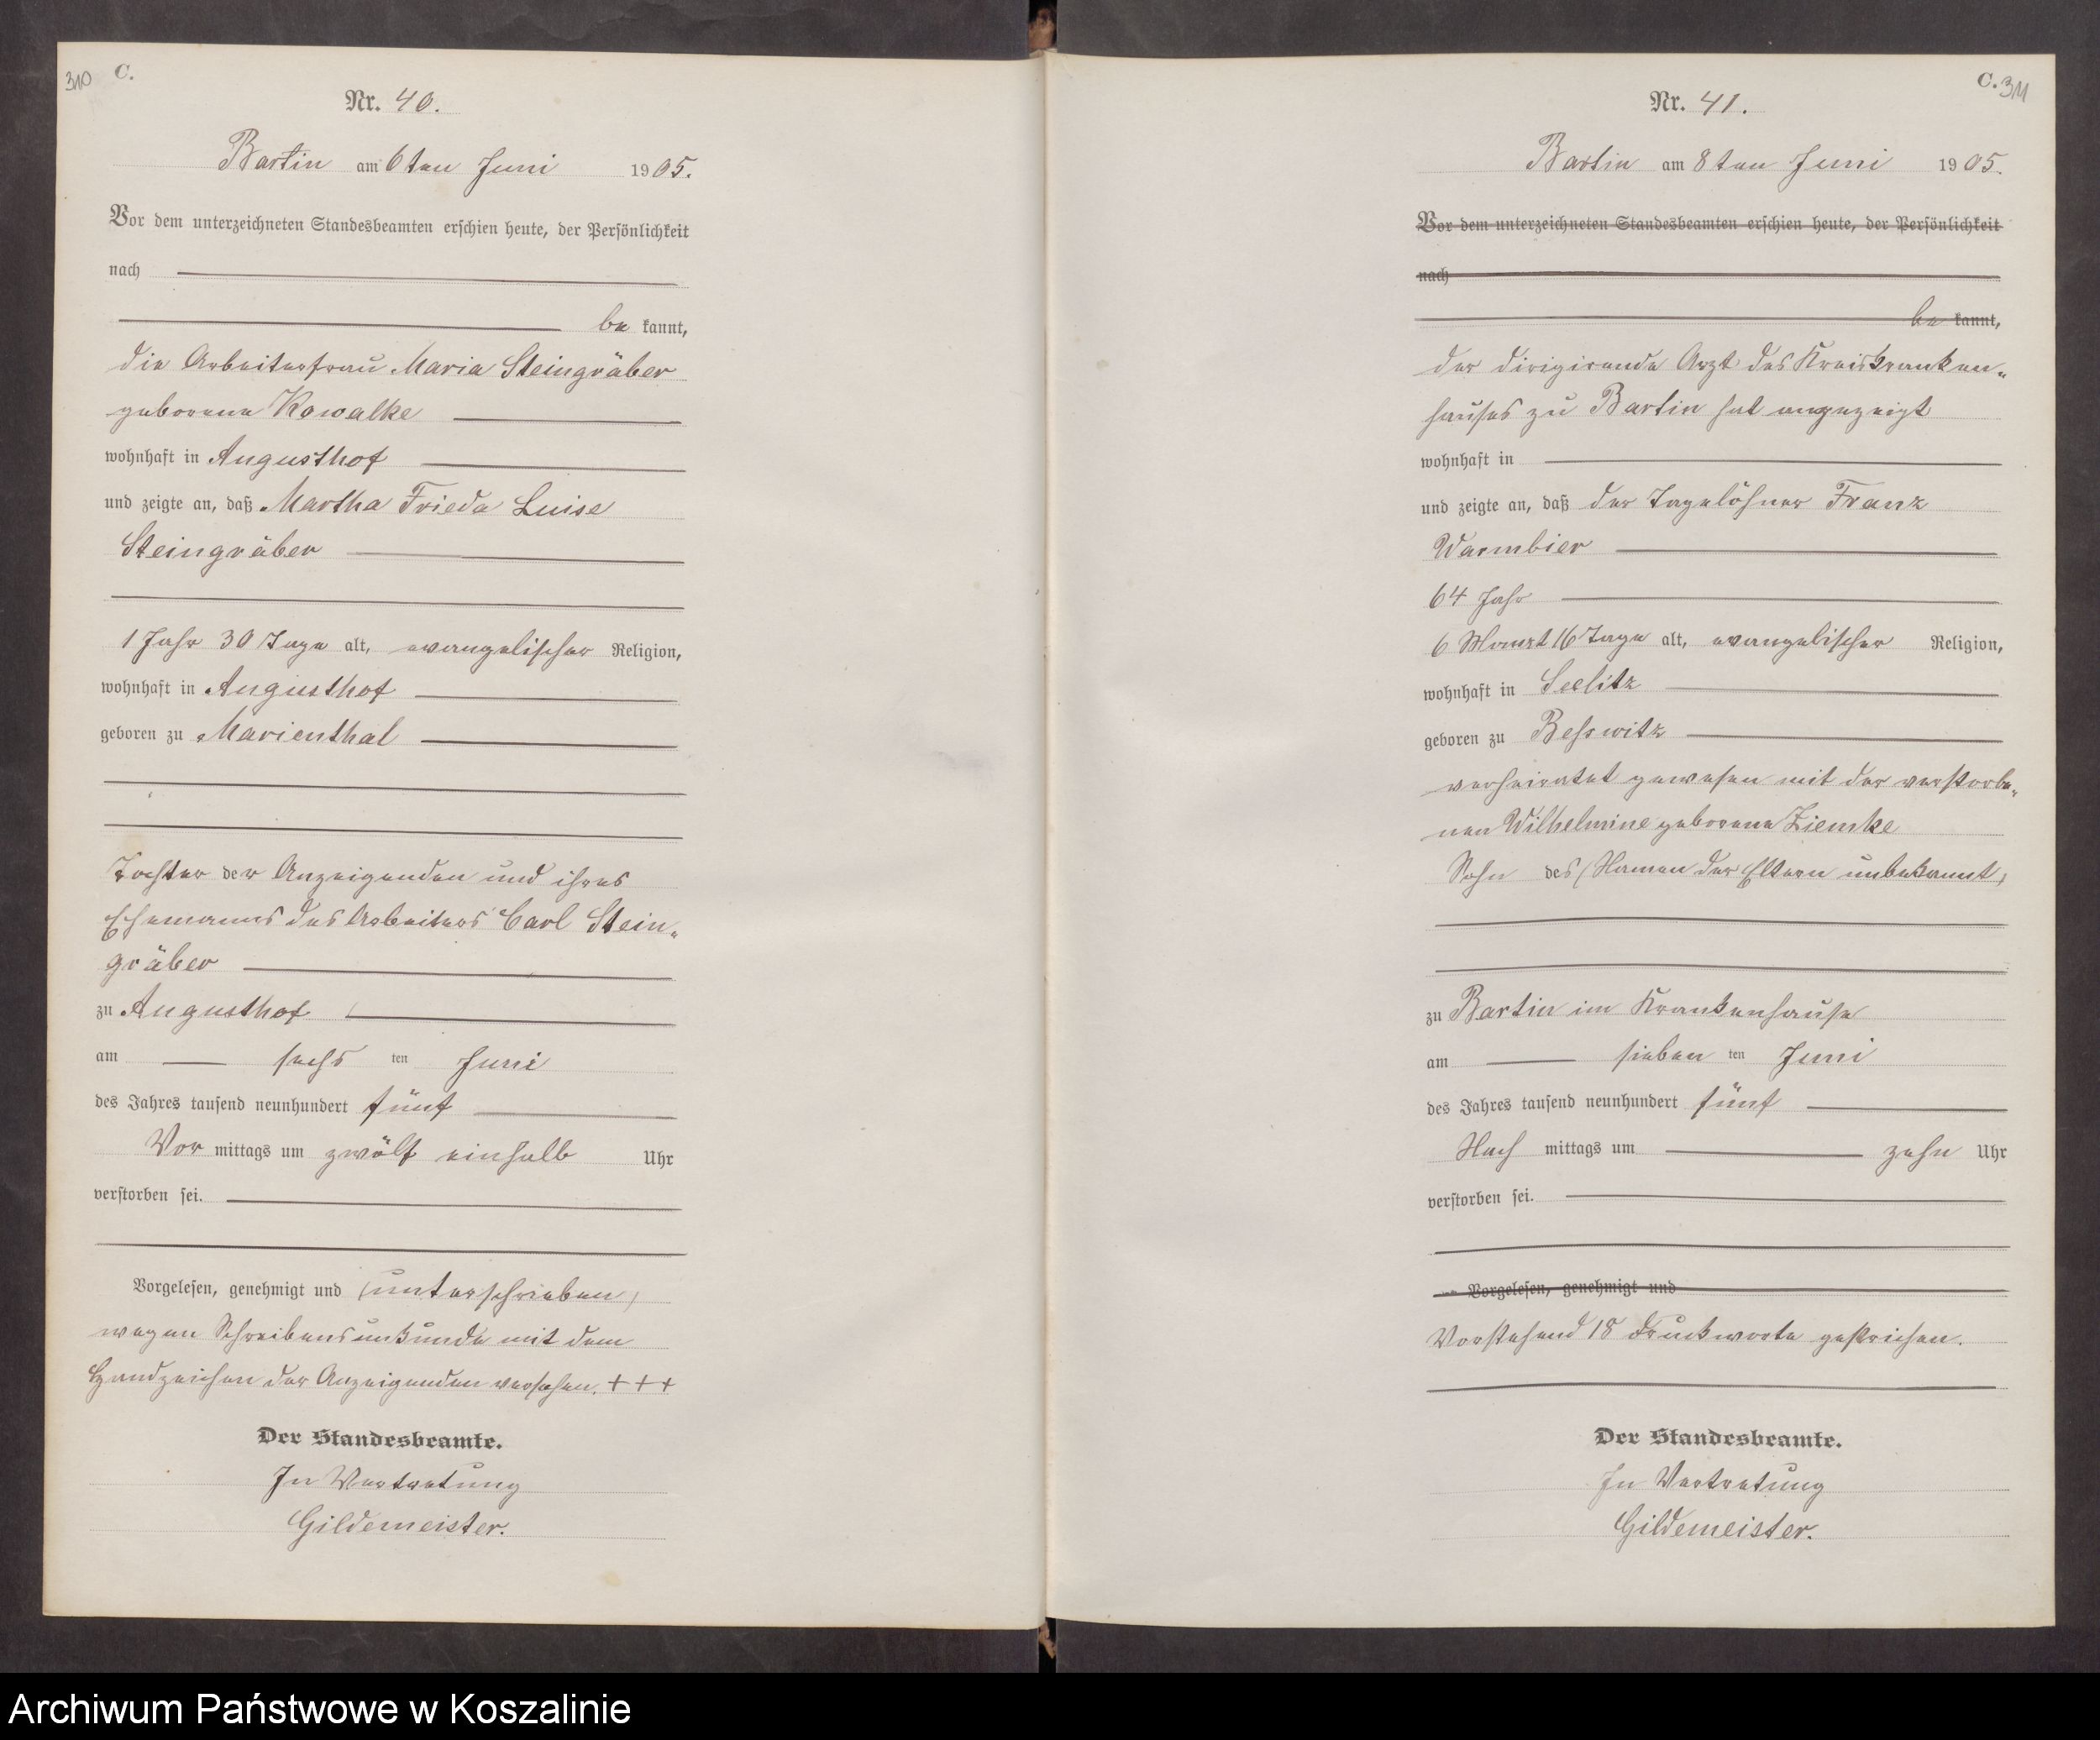 310 C.
Nr. 40.
Bartin am 6ten Juni 1905.
Vor dem unterzeichneten Standesbeamten erschien heute, der Persönlichkeit
nach
be kannt,
die Arbeiterfrau Maria Steingräber
geborene Kowalke
wohnhaft in Augusthof
und zeigte an, daß Martha Frieda Luise
Steingräber
1 Jahr 30 Tage alt, evangelischer Religion,
wohnhaft in Augusthof
geboren zu Marienthal
Tochter der Anzeigenden und ihres
Ehemanns des Arbeiters Carl Stein-
gräber
zu Augusthof
am sechs ten Juni
des Jahres tausend neunhundert fünf
Vor mittags um zwölf einhalb Uhr
verstorben sei.
Vorgelesen, genehmigt und (unterschrieben)
wegen Schreibensunkunde mit dem
Handzeichen der Anzeigenden versehen. +++
Der Standesbeamte.
In Vertretung
Gildemeister.
C. 311
Nr. 41.
Bartin am 8ten Juni 1905.
Vor dem unterzeichneten Standesbeamten erschien heute, der Persönlichkeit
nach
be kannt,
der dirigirende Arzt des Kreiskranken-
hauses zu Bartin hat angezeigt
wohnhaft in
und zeigte an, daß der Tagelöhner Franz
Warmbier
64 Jahr
6 Monat 16 Tage alt, evangelischer Religion,
wohnhaft in Seelitz
geboren zu Besswitz
verheiratet gewesen mit der verstorbe-
nen Wilhelmine geborene Ziemke
Sohn des (Namen der Eltern unbekannt)
zu Bartin im Krankenhause
am sieben ten Juni
des Jahres tausend neunhundert fünf
Nach mittags um zehn Uhr
verstorben sei.
Vorgelesen, genehmigt und
Vorstehend 18 Druckworte gestrichen.
Der Standesbeamte.
In Vertretung
Gildemeister.
Archiwum Państwowe w Koszalinie